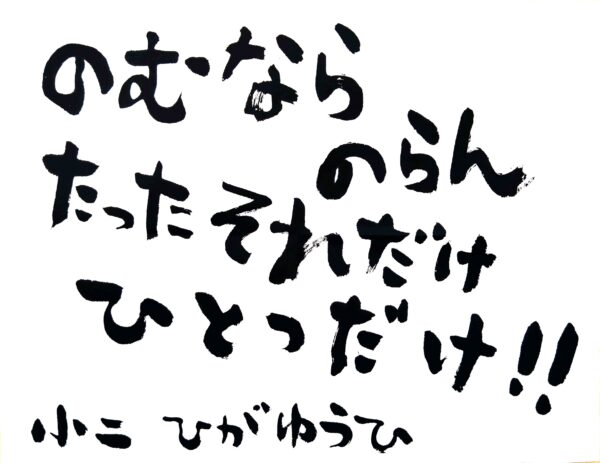 のむなら
のらん
たったそれだけ
ひとつだけ!!
小二 ひがゆうひ